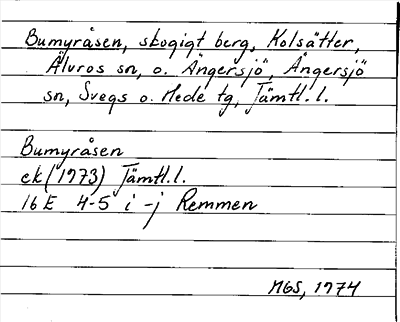 Bumyråsen, skogigt berg, Kolsätter,
Älvros sn, o. Ängersjö, Ängersjö
sn, Svegs o. Hede tg, Jämtl.l.
Bumyråsen
ek (1973) Jämtl.l.
16 E 4-5 i-j Remmen
MGS, 1974